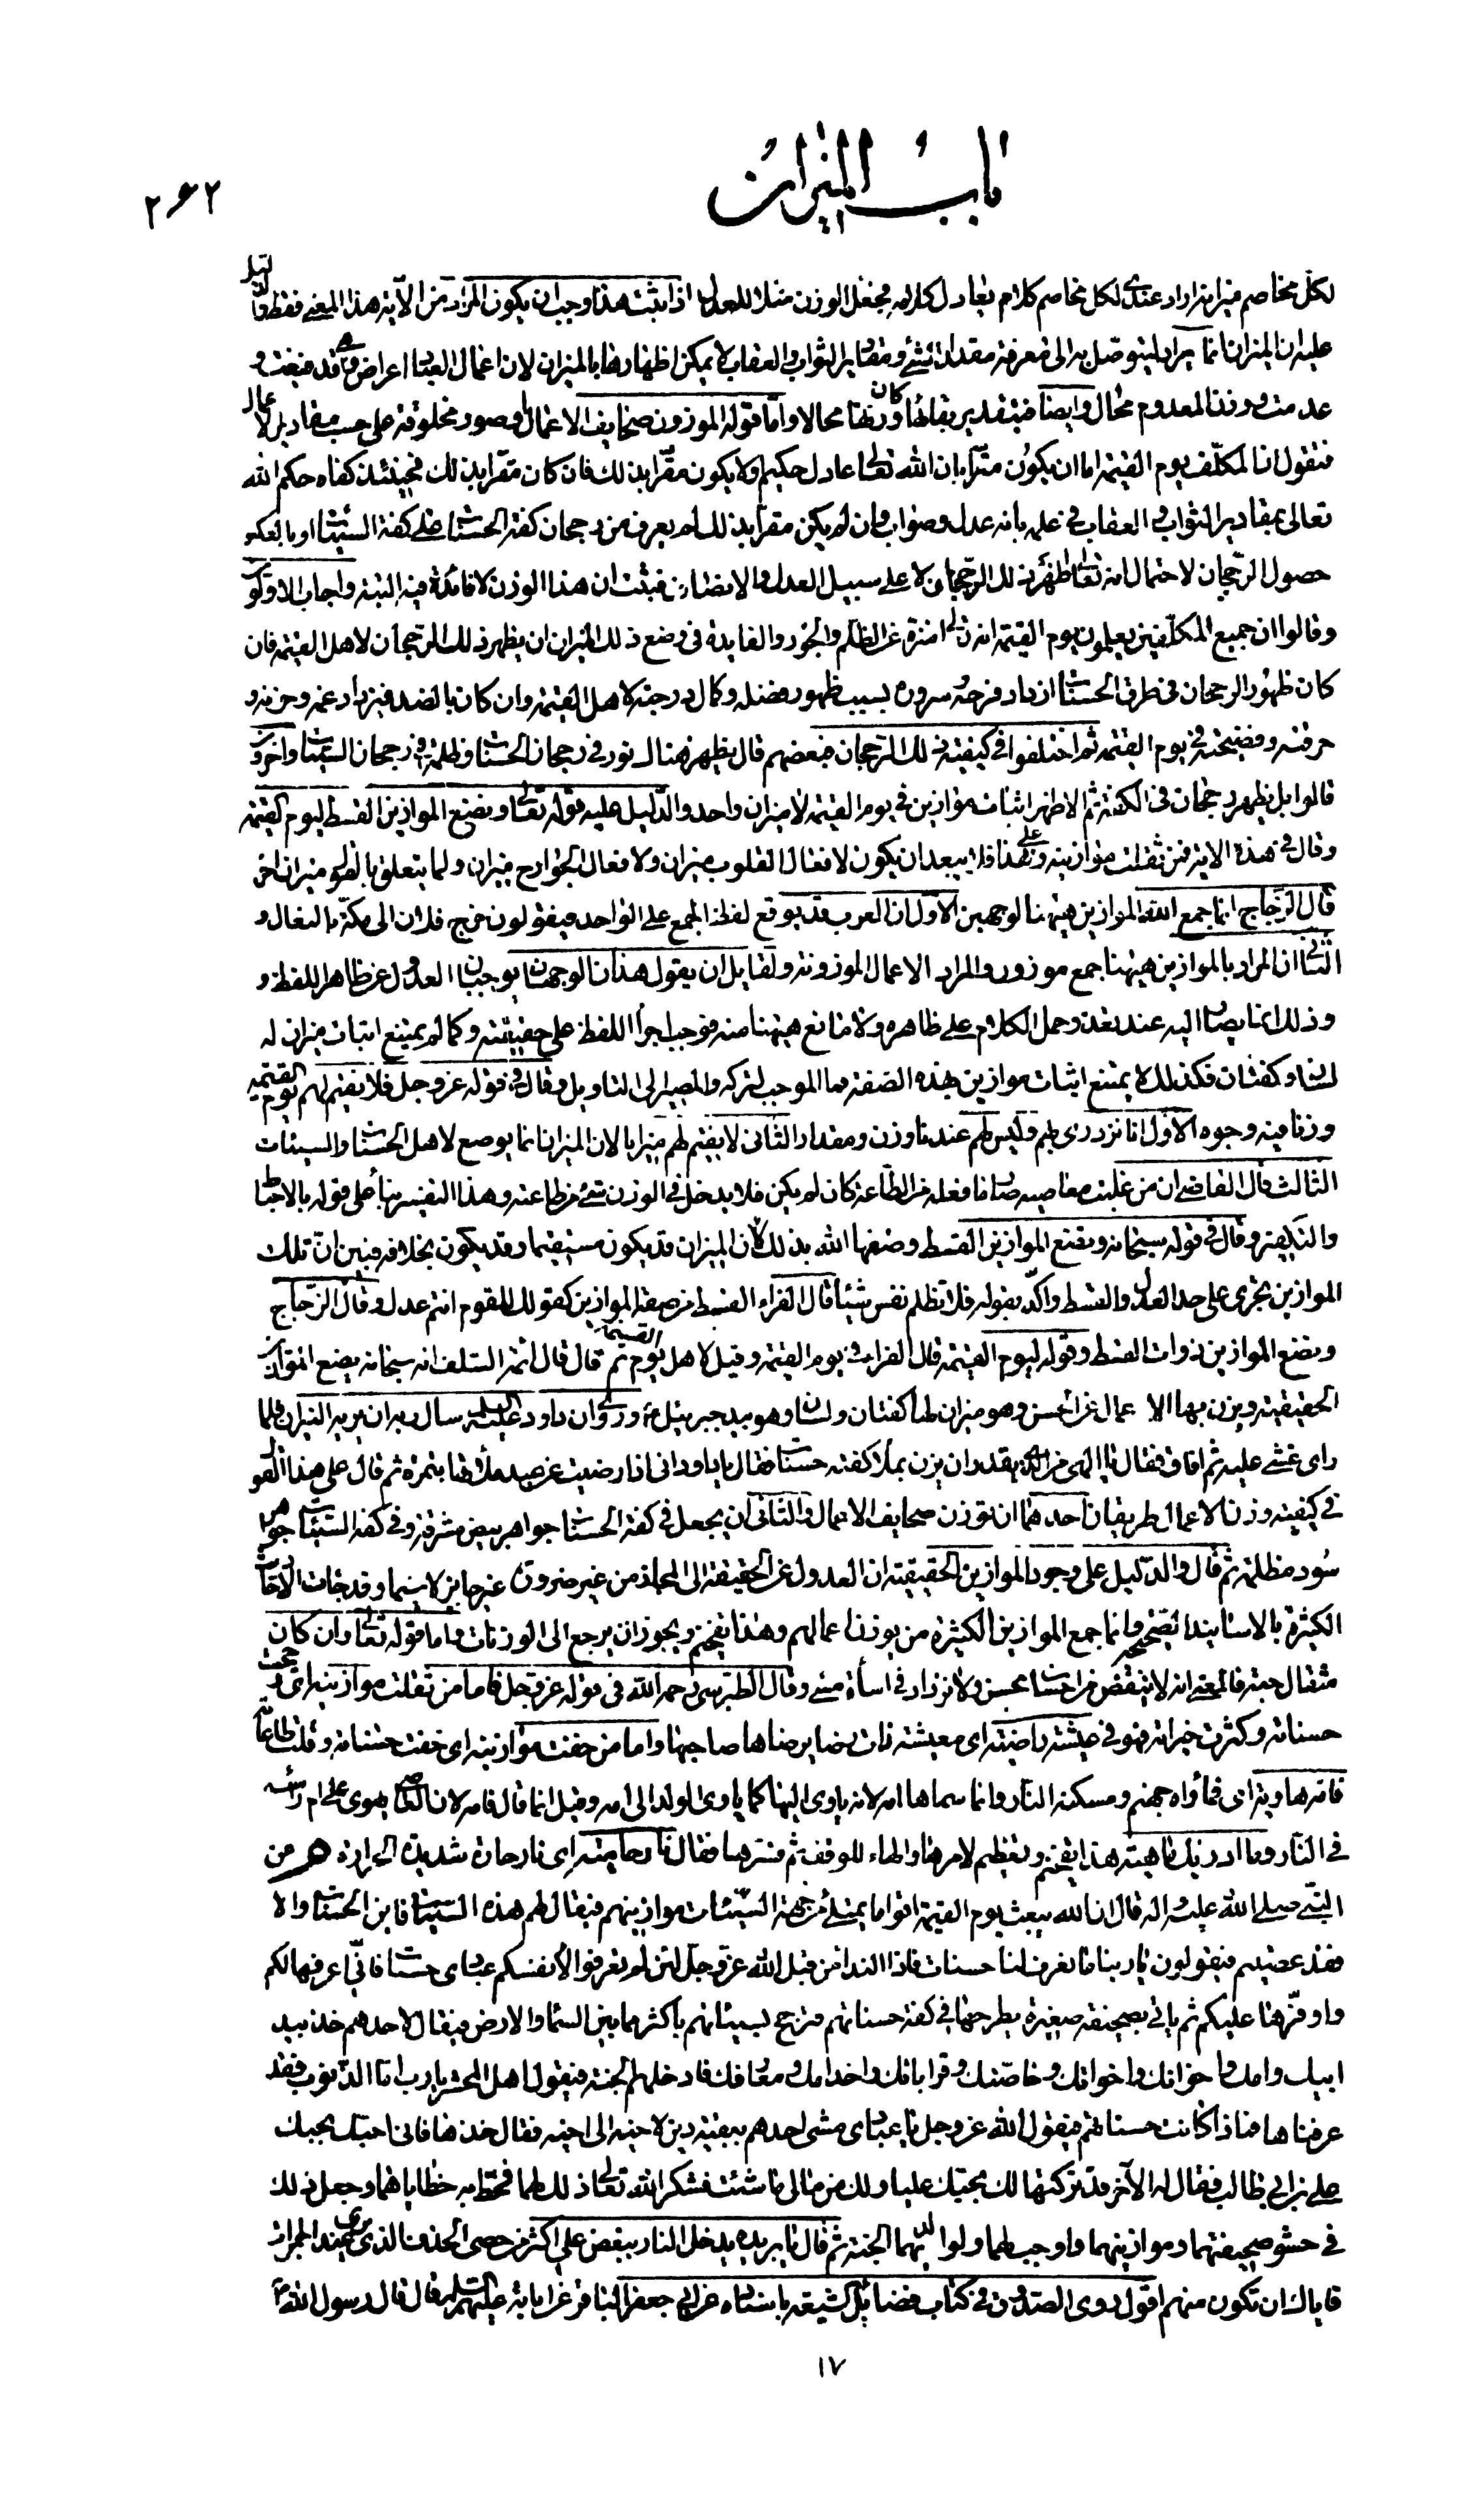 باب الميزان
٢٦٢
لكل مخاصم ميزانه اراد عندي لكل مخاصم كلام يعادل كلامه فجعل الوزن مثلا للعدل اذا ثبت هذا وجب ان يكون المراد من الآية هذا المعنى فقط والدليل
عليه ان الميزان انما يراد ليتوصل به الى معرفة مقدار الشئ ومقادير الثواب والعقاب لا يمكن اظهارها بالميزان لان اعمال العباد اعراض وهي قد فنيت و
عدمت ووزن المعدوم محال وايضا فبتقدير بقائها كان وزنها محالا واما قوله الموزون صحايف الاعمال او صور مخلوقة على حسب مقادير الاعمال
فنقول ان المكلف يوم القيمة اما ان يكون مقرا بان الله تعالى عادل حكيم او لا يكون مقرا بذلك فان كان مقرا بذلك فحينئذ كفاه حكم الله
تعالى بمقادير الثواب والعقاب في علمه بانه عدل وصواب وان لم يكن مقرا بذلك لم يعرف من رجحان كفة الحسنات على كفة السيئات او بالعكس
حصول الرجحان لاحتمال انه تعالى اظهر ذلك الرجحان لا على سبيل العدل والانصاف فثبت ان هذا الوزن لا فائدة فيه البتة واجاب الاولون
وقالوا ان جميع المكلفين يعلمون يوم القيمة انه تعالى منزه عن الظلم والجور والفايدة في وضع ذلك الميزان ان يظهر ذلك الرجحان لاهل القيمة فان
كان ظهور الرجحان في طرف الحسنات ازداد فرحه وسروره بسبب ظهور فضله وكمال درجته لاهل القيمة وان كان بالضد فيزداد غمه وحزنه و
حرقته وفضيحته في يوم القيمة ثم اختلفوا في كيفية ذلك الرجحان فبعضهم قال يظهر هناك نور في رجحان الحسنات وظلمة في رجحان السيئات واخرون
قالوا بل يظهر رجحان في الكفة ثم الاظهر اثبات موازين في يوم القيمة لا ميزان واحد والدليل عليه قوله تعالى ونضع الموازين القسط ليوم القيمة
وقال في هذه الاية فمن ثقلت موازينه وعلى هذا فلا يبعد ان يكون لافعال القلوب ميزان ولافعال الجوارح ميزان ولما يتعلق بالقول ميزان اخر
قال الزجاج انما جمع الله الموازين هيهنا لوجهين الاول ان العرب قد يوقع لفظ الجمع على الواحد فيقولون خرج فلان الى مكة بالبغال و
الثاني ان المراد بالموازين هيهنا جمع موزون والمراد الاعمال الموزونة ولقايل ان يقول هذان الوجهان يوجبان العدول عن ظاهر اللفظ و
وذلك انما يصار اليه عند تعذر حمل الكلام على ظاهره ولا مانع هيهنا منه فوجب اجراء اللفظ على حقيقته وكما لم يمتنع اثبات ميزان له
لسان وكفتان فكذلك لا يمتنع اثبات موازين بهذه الصفة فما الموجب لتركه والمصير الى التاويل وقال في قوله عز وجل فلا نقيم لهم يوم القيمة
وزنا فيه وجوه الاول انا نزدري بهم وليس لهم عندنا وزن ومقدار الثاني لا نقيم لهم ميزانا لان الميزان انما يوضع لاهل الحسنات والسيئات
الثالث قال القاضي ان من غلبت معاصيه صار ما فعله من الطاعة كان لم يكن فلا يدخل في الوزن شئ من طاعته وهذا التفسير بناء على قوله بالاحباط
والتكفير وقال في قوله سبحانه ونضع الموازين القسط وصفها الله بذلك لان الميزان قد يكون مستقيما وقد يكون بخلافه فبين ان تلك
الموازين تجري على حد العدل والقسط واكد بقوله فلا تظلم نفس شيئا قال الفراء القسط من صفة الموازين كقولك للقوم انتم عدل وقال الزجاج
ونضع الموازين ذوات القسط وقوله ليوم القيمة قال الفراء في يوم القيمة وقيل لاهل يوم القيمة ثم قال قال ائمة السلف انه سبحانه يضع الموازين
الحقيقية ويزن بها الاعمال عن الحسن وهو ميزان لها كفتان ولسان وهو بيد جبرئيل وروي ان داود عليه السلام سال ربه ان يريه الميزان فلما
راى غشي عليه ثم افاق فقال يا الهي من الذي يقدر ان يزن بملأ كفته حسنات فقال يا داود اني اذا رضيت عن عبدي ملأتها بتمرة ثم قال على هذا القول
في كيفية وزن الاعمال طريقان احدهما ان توزن صحايف الاعمال والثاني ان يجعل في كفة الحسنات جواهر بيض مشرقة وفي كفة السيئات جواهر
سود مظلمة ثم قال والدليل على وجود الموازين الحقيقية ان العدول عن الحقيقة الى المجاز من غير ضرورة غير جايز لا سيما وقد جاءت الاحاديث
الكثيرة بالاسانيد الصحيحة وانما جمع الموازين لكثرة من يوزن اعمالهم وهذا تفخيم ويجوز ان يرجع الى الوزنات واما قوله تعالى وان كان
مثقال حبة فالمعنى انه لا ينقص من احسان محسن ولا يزداد في اساءة مسئ وقال الطبرسي رحمه الله في قوله عز وجل فاما من ثقلت موازينه اي رجحت
حسناته وكثرت خيراته فهو في عيشة راضية اي معيشة ذات رضا يرضاها صاحبها واما من خفت موازينه اي خفت حسناته وقلت طاعاته
فامه هاوية اي فمأواه جهنم ومسكنه النار وانما سماها امه لانه ياوي اليها كما ياوي الولد الى امه وقيل انما قال فامه لان العاصي يهوي على ام رأسه
في النار وما ادريك ماهيه هذا تفخيم وتعظيم لامرها والهاء للوقف ثم فسرها فقال نار حامية اي نار حارة شديدة الحرارة م عن
النبي صلى الله عليه واله قال ان الله يبعث يوم القيمة اقواما يمتلئ من جهة السيئات موازينهم فيقال لهم هذه السيئات فاين الحسنات والا
فقد عصيتم فيقولون يا ربنا ما نعرف لنا حسنات فاذا النداء من قبل الله عز وجل لئن لم تعرفوا لانفسكم عبادي حسنات فاني اعرفها لكم
واوفرها عليكم ثم ياتي بصحيفة صغيرة يطرحها في كفة حسناتهم فترجح بسيئاتهم باكثر مما بين السماء والارض فيقال لاحدهم خذ بيد
ابيك وامك واخوانك واخواتك وخاصتك وقراباتك واخدامك ومعارفك فادخلهم الجنة فيقول اهل المحشر يا رب اما الذنوب فقد
عرفناها فماذا كانت حسناتهم فيقول الله عز وجل يا عبادي مشى احدهم ببقية دين لاخيه الى اخيه فقال خذها فاني احبك بحبك
علي بن ابي طالب فقال له الآخر قد تركتها لك بحبك عليا ولك من مالي ما شئت فشكر الله تعالى ذلك لهما فحط به خطاياهما وجعل ذلك
في حشو صحيفتهما وموازينهما واوجب لهما ولوالديهما الجنة ثم قال يا بريده يدخل النار ببغض علي اكثر من حصى الخذف الذي يرمى عند الجمرات
فاياك ان تكون منهم اقول روى الصدوق في كتاب فضائل الشيعة باسناده عن ابي جعفر الباقر عن ابائه عليهم السلام قال قال رسول الله ص
١٧